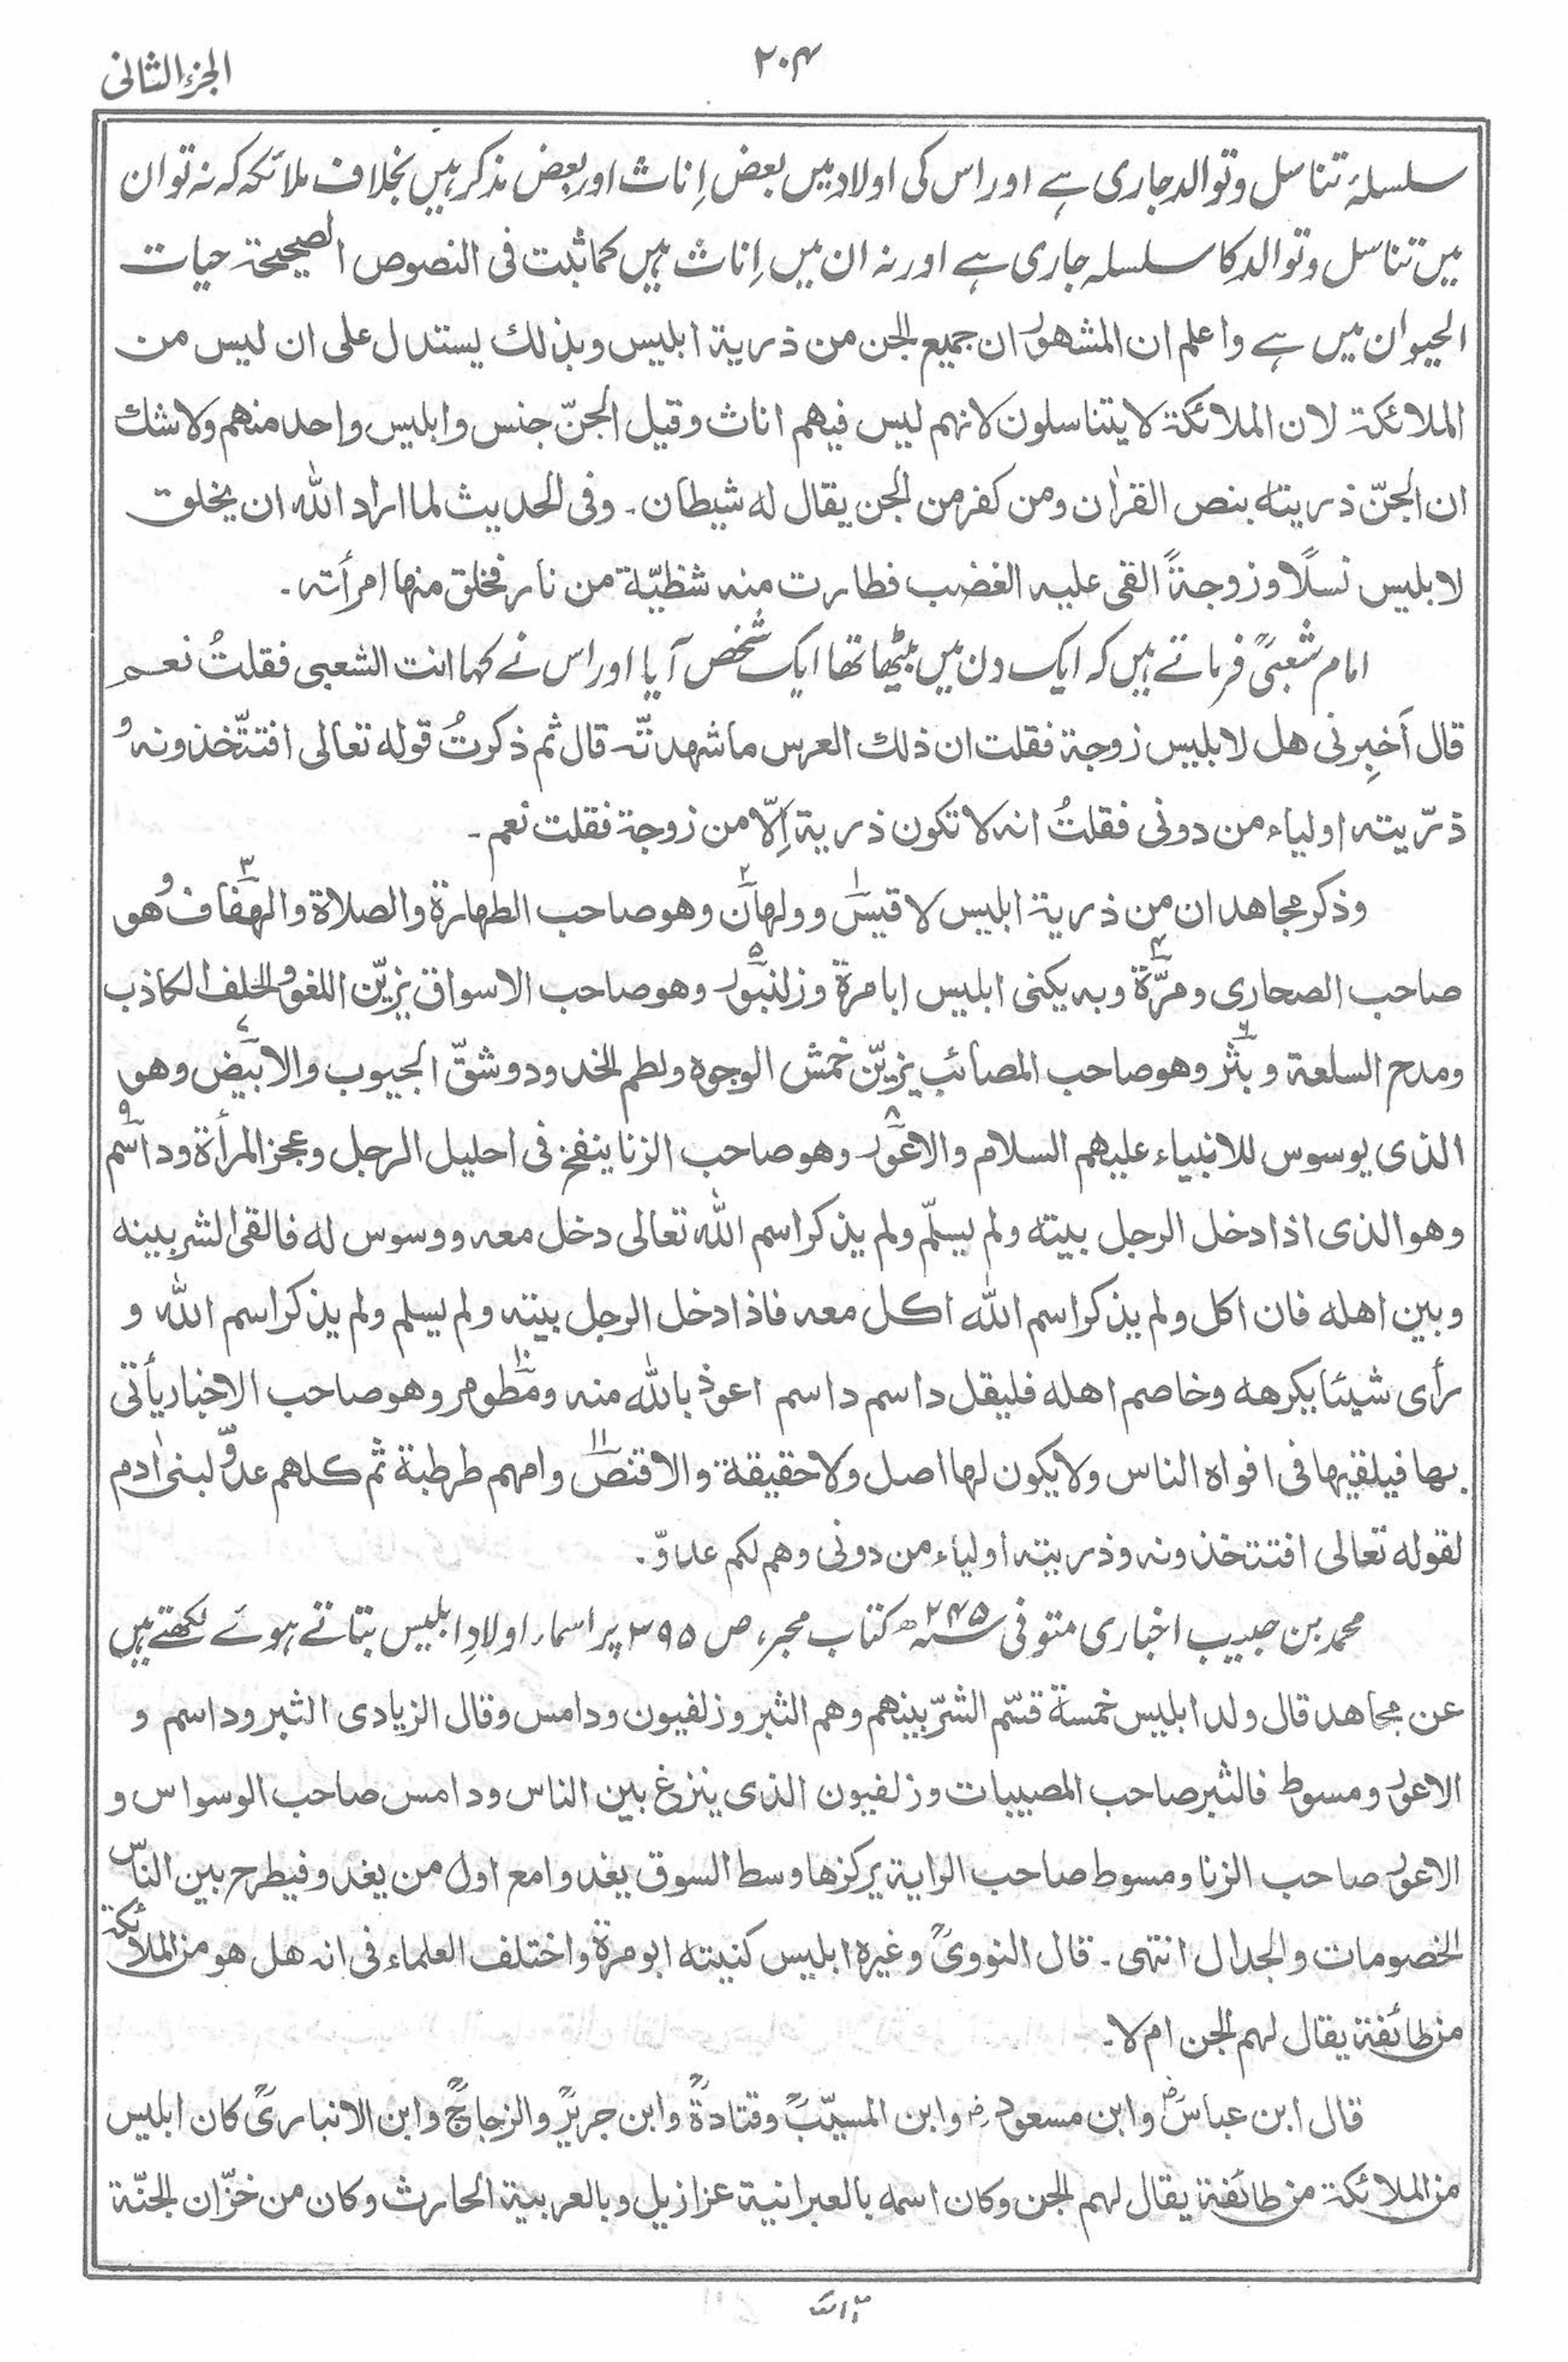 الجزء الثانی
۲۰۴
سلسلۂ تناسل و توالد جاری ہے اور اس کی اولاد میں بعض اِناث اور بعض مذکر ہیں بخلاف ملائکہ کہ نہ تو ان
میں تناسل و توالد کا سلسلہ جاری ہے اور نہ ان میں اِناث ہیں کما ثبت فی النصوص الصحیحۃ حیات
الحیوان میں ہے واعلم ان المشهور ان جمیع الجن من ذریۃ ابلیس وبذلك یستدل علی ان لیس من
الملائکۃ لان الملائکۃ لا یتناسلون لانهم لیس فیهم اناث وقیل الجنّ جنس وابلیس واحد منهم ولا شك
ان الجنّ ذریته بنص القراٰن ومن کفر من الجن یقال له شیطان۔ وفی الحدیث لما اراد الله ان یخلق
لابلیس نسلًا وزوجةً القی علیه الغضب فطارت منه شظیّة من نار فخلق منها امرأته۔
امام شعبیؒ فرماتے ہیں کہ ایک دن میں بیٹھا تھا ایک شخص آیا اور اس نے کہا انت الشعبی فقلتُ نعم
قال اَخبِرنی هل لابلیس زوجة فقلت ان ذلك العرس ما شهدتّه قال ثم ذکرتُ قوله تعالی افتتّخذونهٗ و
ذرّیته اولیاء من دونی فقلتُ انه لا تکون ذریة اِلّا من زوجة فقلت نعم۔
وذکر مجاهد ان من ذریۃ ابلیس لاقیس۱ وولهان۲ وهو صاحب الطهارة والصلاة والهفاف۳ وهو
صاحب الصحاری ومرّة۴ وبه یکنی ابلیس ابا مرة وزلنبور۵ وهو صاحب الاسواق یزیّن اللغو والحلف الکاذب
ومدح السلعة وبثر۶ وهو صاحب المصائب یزیّن خمش الوجوه ولطم الخدود وشقّ الجیوب والابیض۷ وهو
الذی یوسوس للانبیاء علیهم السلام والاعور۸ وهو صاحب الزنا ینفخ فی احلیل الرجل وعجز المرأة وداسم۹
وهو الذی اذا دخل الرجل بیته ولم یسلّم ولم یذکر اسم الله تعالی دخل معه ووسوس له فالقی الشر بینه
وبین اهله فان اکل ولم یذکر اسم الله اکل معه فاذا دخل الرجل بیته ولم یسلم ولم یذکر اسم الله و
رأی شیئا یکرهه وخاصم اهله فلیقل داسم داسم اعوذ بالله منه ومطوم۱۰ وهو صاحب الاخبار یأتی
بها فیلقیها فی افواه الناس ولا یکون لها اصل ولا حقیقة والاقنص۱۱ وامهم طرطبة ثم کلهم عدوّ لبنی اٰدم
لقوله تعالی افتتخذونه وذریته اولیاء من دونی وهم لکم عدوّ۔
محمد بن حبیب اخباری متوفی ۲۴۵ھ کتاب محبر، ص ۳۹۵ پر اسماء اولادِ ابلیس بتاتے ہوئے لکھتے ہیں
عن مجاهد قال ولد ابلیس خمسة قسّم الشرّ بینهم وهم الثبر وزلفیون ودامس وقال الزیادی الثبر وداسم و
الاعور ومسوط فالثبر صاحب المصیبات وزلفیون الذی ینزغ بین الناس ودامس صاحب الوسواس و
الاعور صاحب الزنا ومسوط صاحب الرایة یرکزها وسط السوق یغدو مع اول من یغدو فیطرح بین الناس
الخصومات والجدال انتهی۔ قال النوویؒ وغیره ابلیس کنیته ابو مرة واختلف العلماء فی انه هل هو من الملائکۃ
من طائفة یقال لهم الجن ام لا۔
قال ابن عباسؓ وابن مسعودؓ وابن المسیّبؒ وقتادةؒ وابن جریرؒ والزجاجؒ وابن الانباریؒ کان ابلیس
من الملائکۃ من طائفة یقال لهم الجن وکان اسمه بالعبرانیة عزازیل وبالعربیة الحارث وکان من خزّان الجنّة